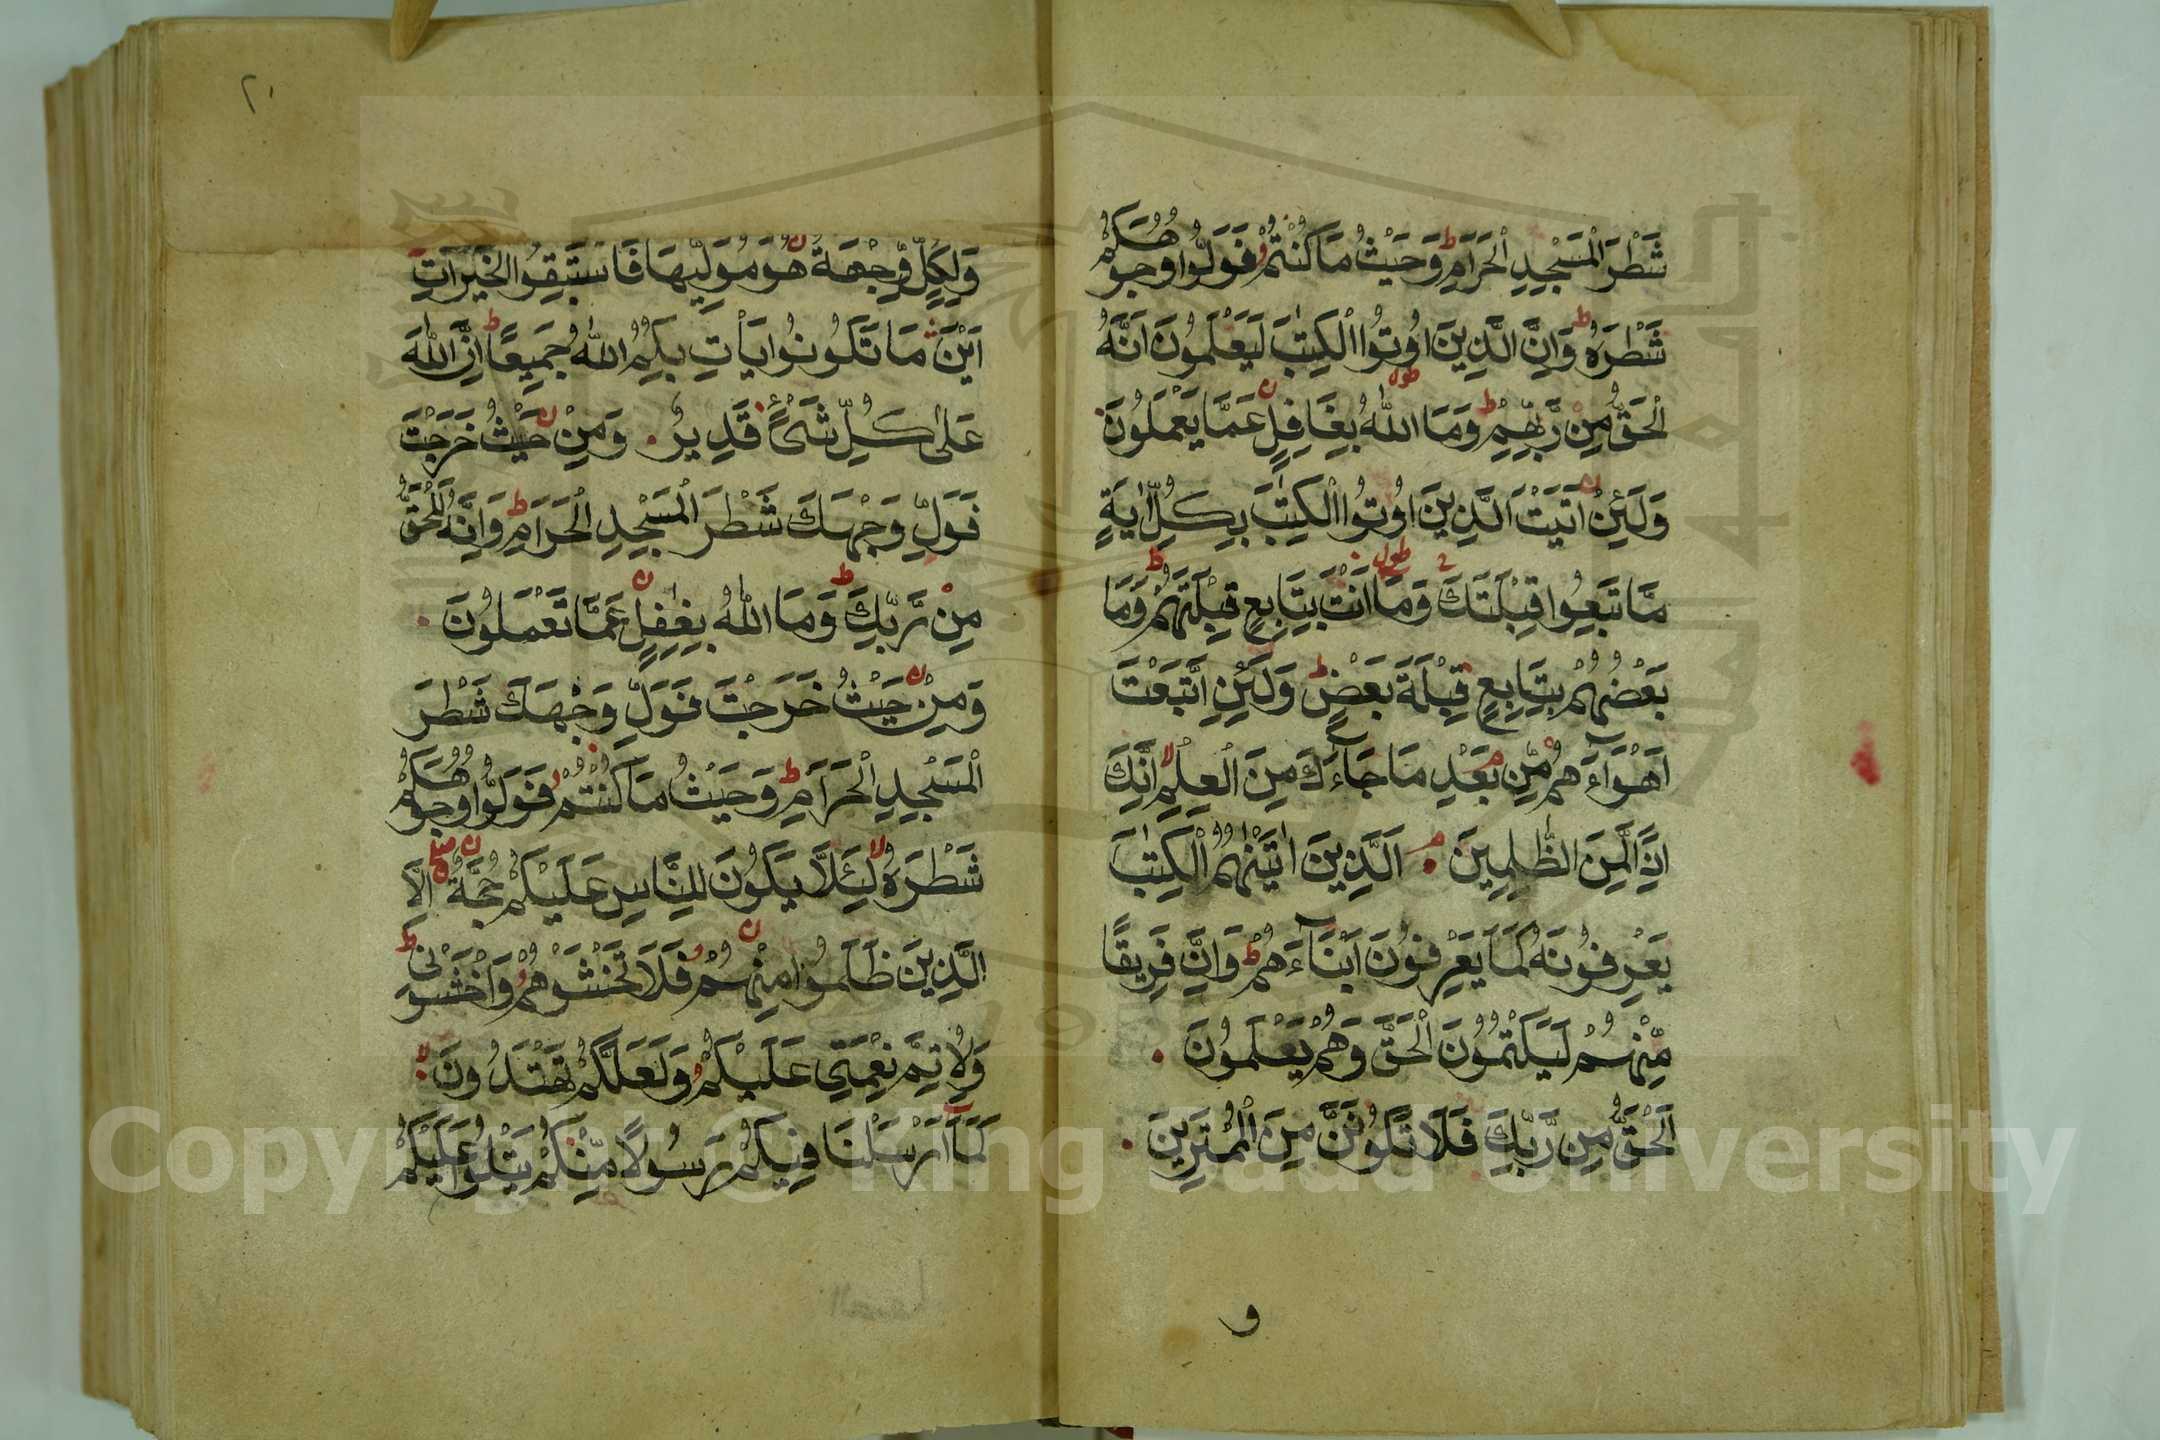 شَطْرَ الْمَسْجِدِ الْحَرَامِ ط وَحَيْثُ مَا كُنْتُمْ فَوَلُّوا وُجُوهَكُمْ
شَطْرَهُ ط وَاِنَّ الَّذِينَ اُوتُوا الْكِتٰبَ لَيَعْلَمُونَ اَنَّهُ
الْحَقُّ مِنْ رَّبِّهِمْ ط وَمَا اللّٰهُ بِغَافِلٍ عَمَّا يَعْمَلُونَ
وَلَئِنْ اَتَيْتَ الَّذِينَ اُوتُوا الْكِتٰبَ بِكُلِّ اٰيَةٍ
مَّا تَبِعُوا قِبْلَتَكَ وَمَا اَنْتَ بِتَابِعٍ قِبْلَتَهُمْ ط وَمَا
بَعْضُهُمْ بِتَابِعٍ قِبْلَةَ بَعْضٍ ط وَلَئِنِ اتَّبَعْتَ
اَهْوَآءَهُمْ مِّنْ بَعْدِ مَا جَآءَكَ مِنَ الْعِلْمِ لا اِنَّكَ
اِذًا لَّمِنَ الظّٰلِمِينَ . اَلَّذِينَ اٰتَيْنٰهُمُ الْكِتٰبَ
يَعْرِفُونَهُ كَمَا يَعْرِفُونَ اَبْنَآءَهُمْ ط وَاِنَّ فَرِيقًا
مِّنْهُمْ لَيَكْتُمُونَ الْحَقَّ وَهُمْ يَعْلَمُونَ .
اَلْحَقُّ مِنْ رَّبِّكَ فَلَا تَكُونَنَّ مِنَ الْمُمْتَرِينَ .
و
٢٠
وَلِكُلٍّ وِّجْهَةٌ هُوَ مُوَلِّيهَا فَاسْتَبِقُوا الْخَيْرَاتِ
اَيْنَ مَا تَكُونُوا يَاْتِ بِكُمُ اللّٰهُ جَمِيعًا ط اِنَّ اللّٰهَ
عَلٰى كُلِّ شَىْءٍ قَدِيرٌ . وَمِنْ حَيْثُ خَرَجْتَ
فَوَلِّ وَجْهَكَ شَطْرَ الْمَسْجِدِ الْحَرَامِ ط وَاِنَّهُ لَلْحَقُّ
مِنْ رَّبِّكَ ط وَمَا اللّٰهُ بِغٰفِلٍ عَمَّا تَعْمَلُونَ .
وَمِنْ حَيْثُ خَرَجْتَ فَوَلِّ وَجْهَكَ شَطْرَ
الْمَسْجِدِ الْحَرَامِ ط وَحَيْثُ مَا كُنْتُمْ فَوَلُّوا وُجُوهَكُمْ
شَطْرَهُ لا لِئَلَّا يَكُونَ لِلنَّاسِ عَلَيْكُمْ حُجَّةٌ اِلَّا
الَّذِينَ ظَلَمُوا مِنْهُمْ فَلَا تَخْشَوْهُمْ وَاخْشَوْنِى ط
وَلِاُتِمَّ نِعْمَتِى عَلَيْكُمْ وَلَعَلَّكُمْ تَهْتَدُونَ لا
كَمَآ اَرْسَلْنَا فِيكُمْ رَسُولًا مِّنْكُمْ يَتْلُوا عَلَيْكُمْ
Copyright © King Saud University